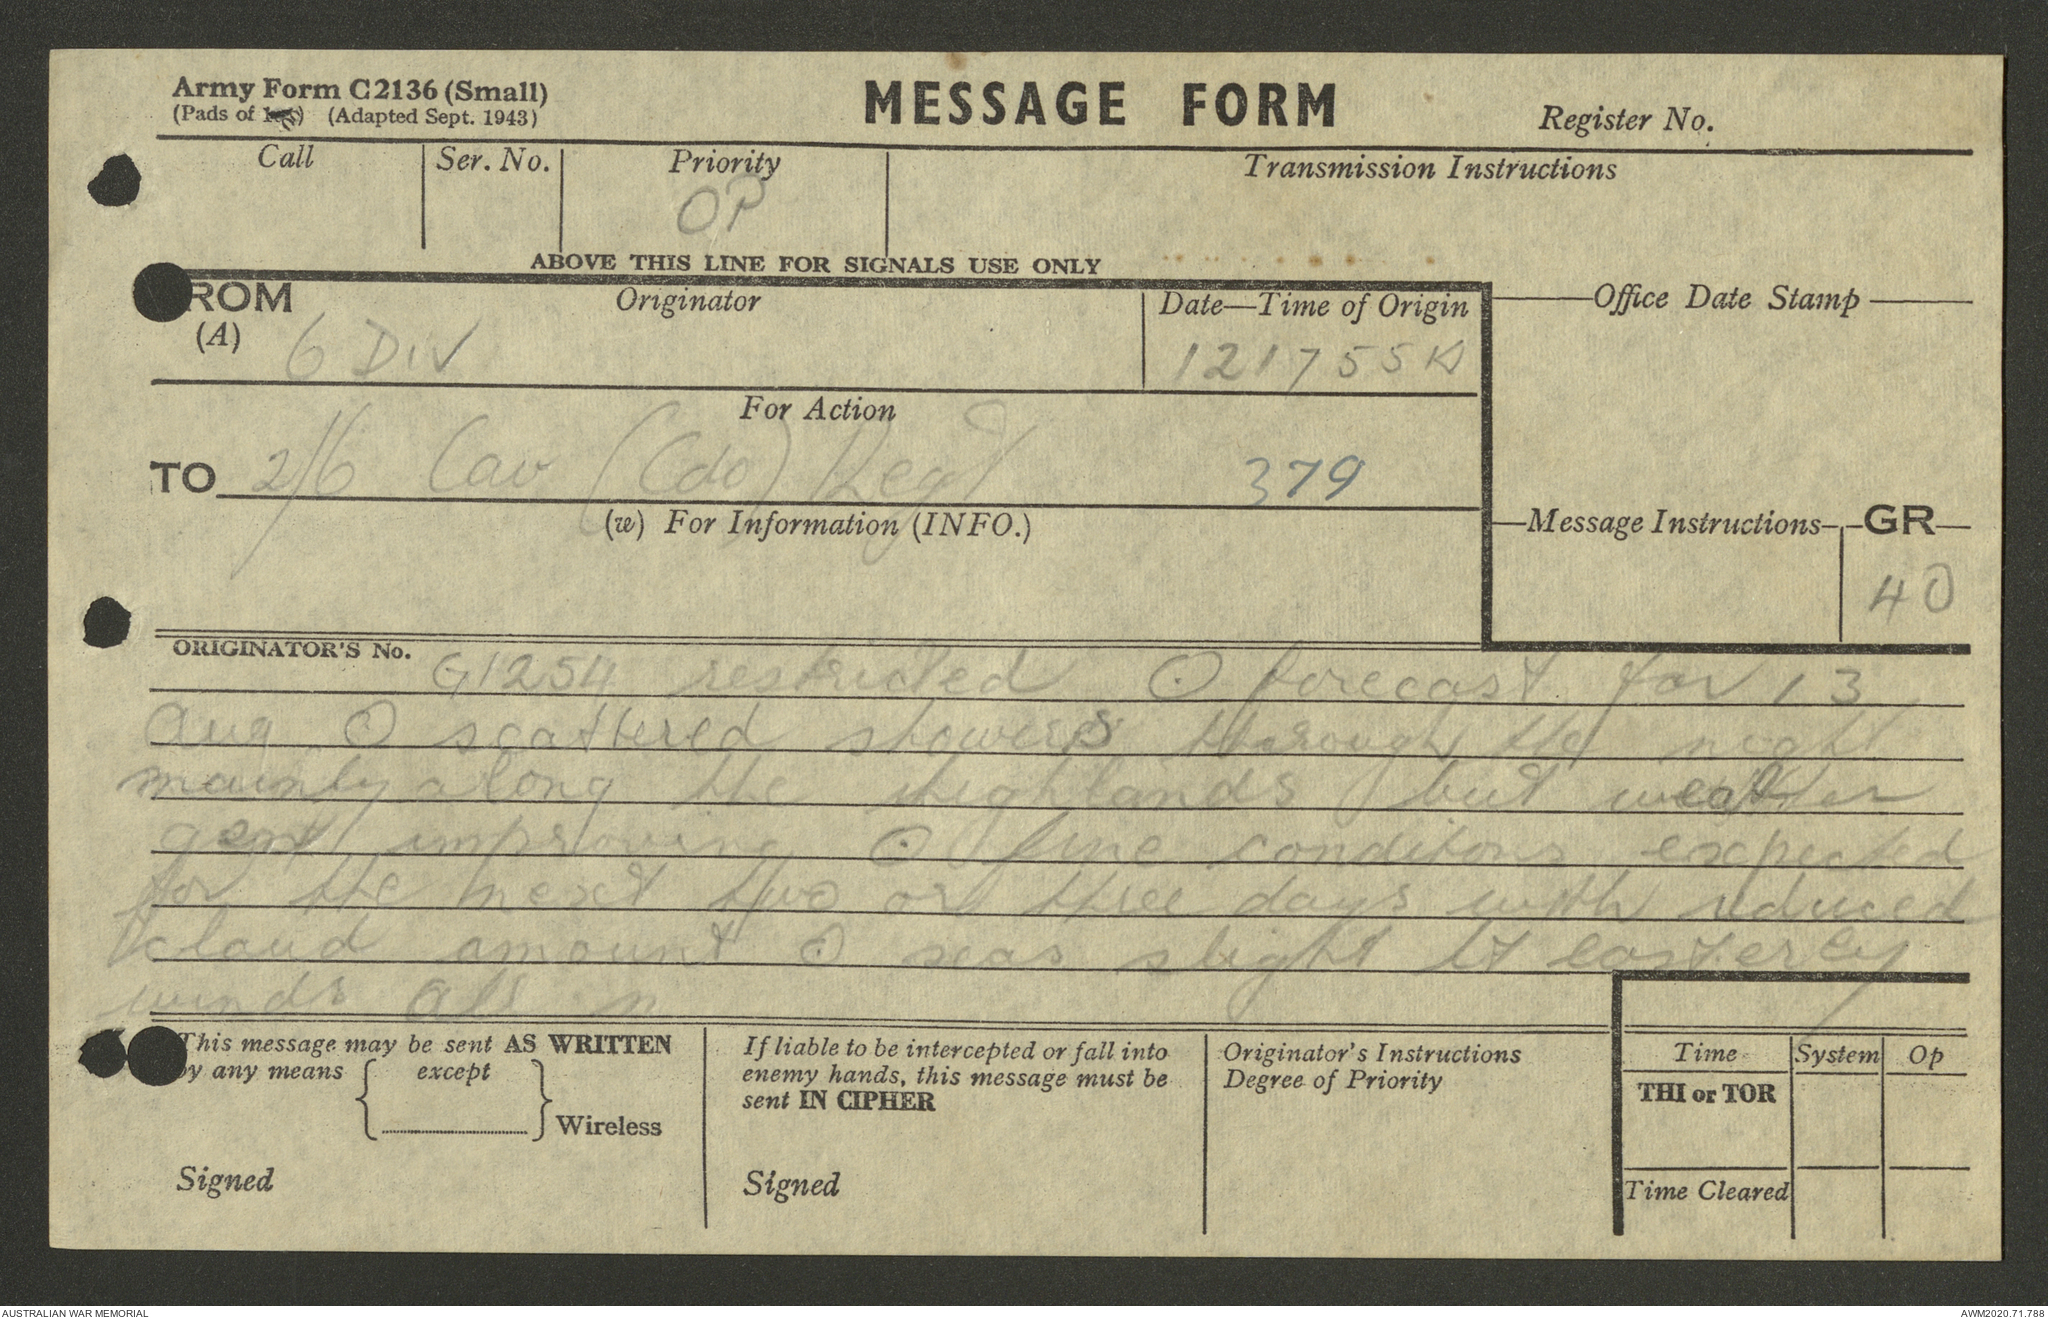 Army Form C2136 (Small)
(Pads of ) (Adapted Sept. 1943)
MESSAGE FORM
Register No.
Call
Ser. No.
Priority
OP
Transmission Instructions
ABOVE THIS LINE FOR SIGNALS USE ONLY
ROM
(A)
Originator
6 DIV
Date—Time of Origin
121755K
Office Date Stamp
For Action
TO 2/6 Cav (Cdo) Regt 379
(w) For Information (INFO.)
Message Instructions
GR
40
ORIGINATOR'S No.
G1254 restricted ⊙ forecast for 13
Aug ⊙ scattered showers through the night
mainly along the highlands but weather
gen improving ⊙ fine conditions expected
for the next two or three days with reduced
cloud amount ⊙ seas slight lt easterly
winds
This message may be sent AS WRITTEN
by any means except
Wireless
Signed
If liable to be intercepted or fall into
enemy hands, this message must be
sent IN CIPHER
Signed
Originator's Instructions
Degree of Priority
Time System Op
THI or TOR
Time Cleared
AUSTRALIAN WAR MEMORIAL
AWM2020.71.788